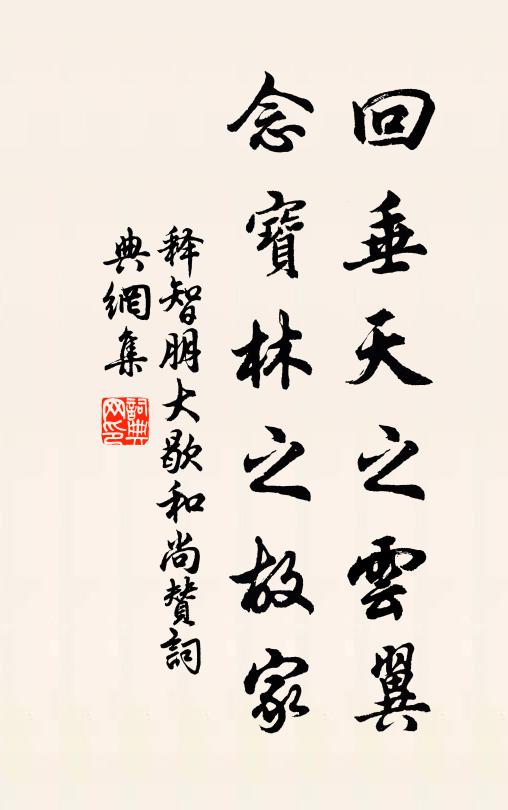 回垂天之雲翼
念寶林之故家
释智朋大歇和尚赞詞
典網集
詞典
网印